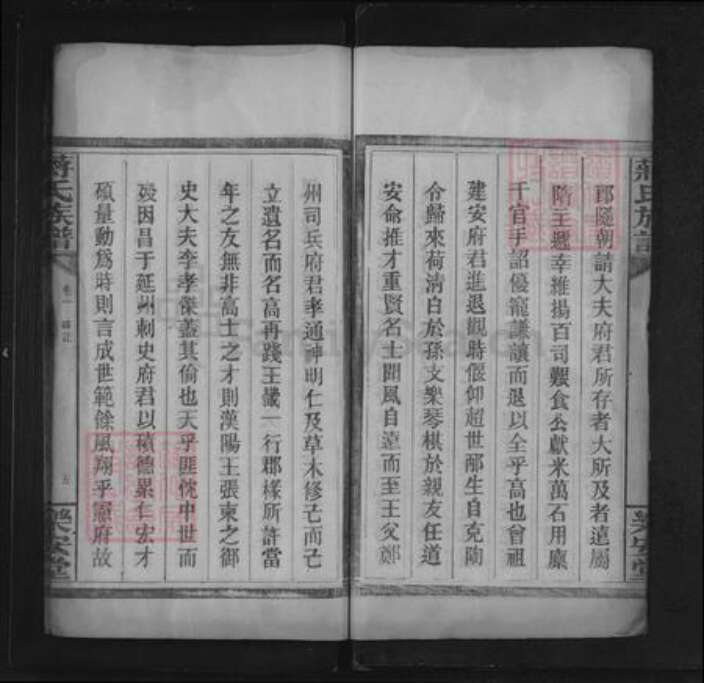 蔣氏族譜
樂安堂
郎隨朝請大夫府君所存者大所及者遠屬
隋王遷幸維揚百司艱食公獻米萬石用廩
千官手詔優寵謙讓而退以全乎高也曾祖
建安府君進退觀時偃仰超世酈生自克陶
令歸來荷清白於孫文樂琴棋於親友任道
安命推才重賢名士聞風自遠而至王父鄭
州司兵府君孝通神明仁及草木修己而己
立遺名而名高再踐王畿一行郡椽所許當
年之友無非高士之才則漢陽王張柬之御
史大夫李孝傑蓋其倫也天乎匪忱中世而
歿因昌于延州刺史府君以積德累仁宏才
碩量動為時則言成世範餘風翔乎憲府故
蔣氏族譜
卷一
五
樂安堂